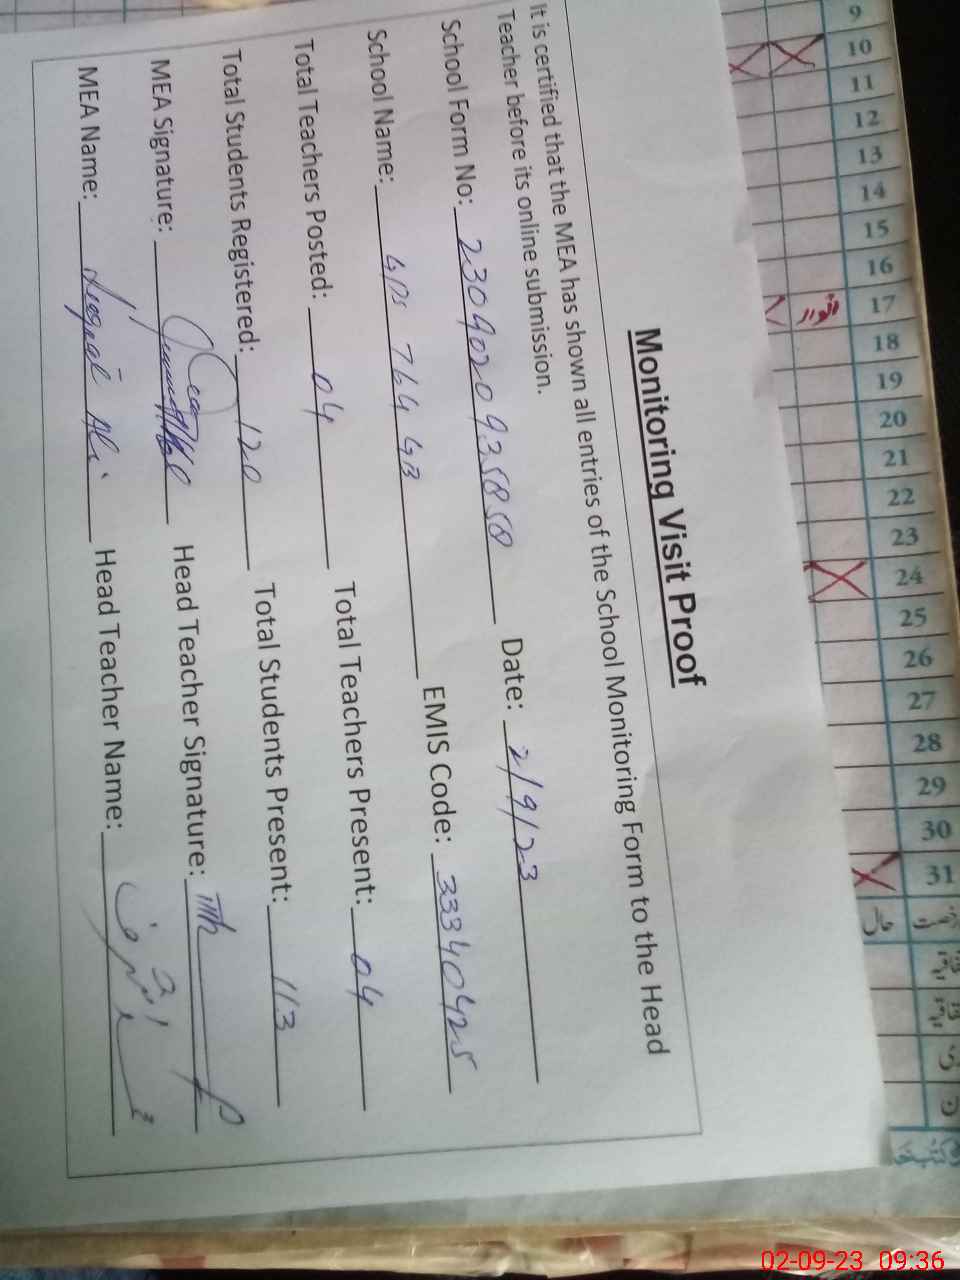 Monitoring Visit Proof
It is certified that the MEA has shown all entries of the School Monitoring Form to the Head
Teacher before its online submission.
School Form No: 23090209358 58 Date: 2/9/23
School Name: GPS 764 GB EMIS Code: 33340425
Total Teachers Posted: 04 Total Teachers Present: 04
Total Students Registered: 120 Total Students Present: 113
MEA Signature: Head Teacher Signature:
MEA Name: Ali Head Teacher Name:
9
10
11
12
13
14
15
16
17
18
19
20
21
22
23
24
25
26
27
28
29
30
31
حال
02-09-23 09:36